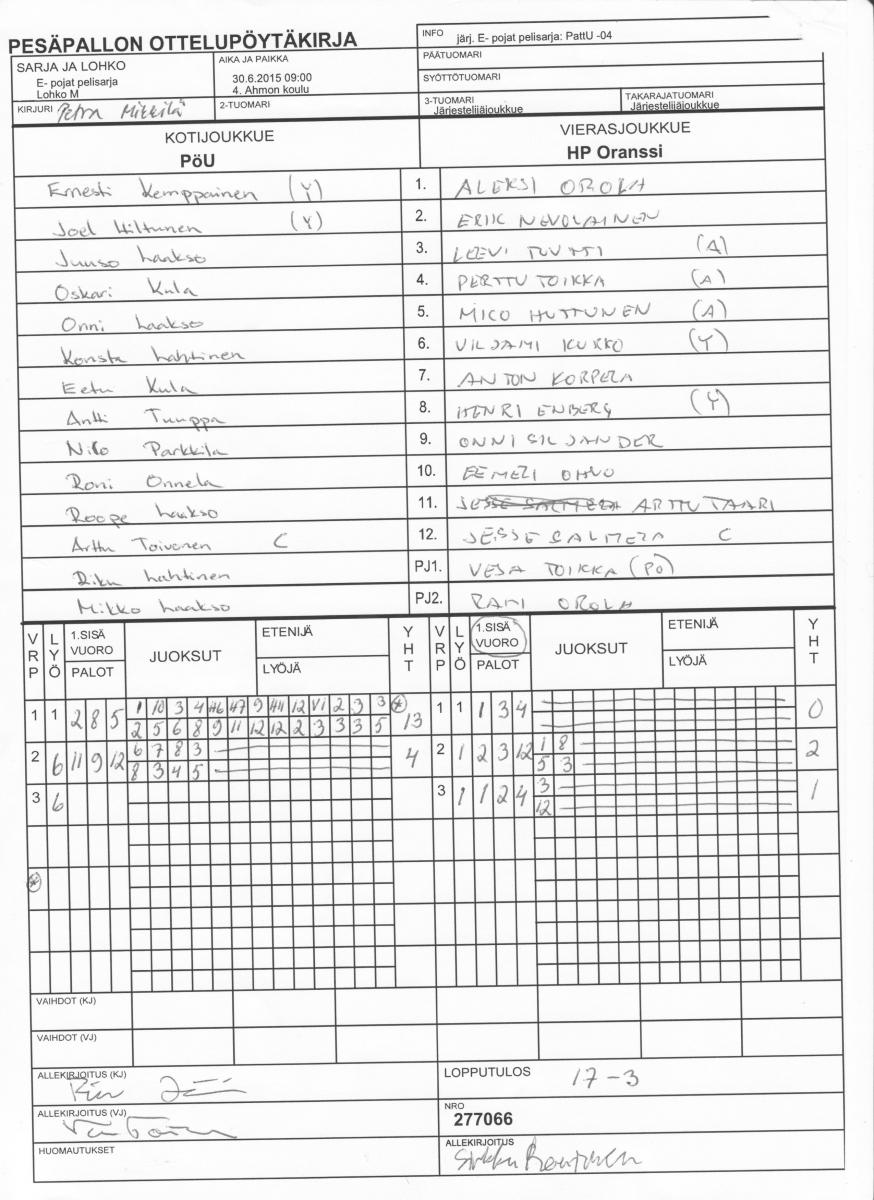 PESÄPALLON OTTELUPÖYTÄKIRJA
INFO järj. E- pojat pelisarja: PattU -04
SARJA JA LOHKO
E- pojat pelisarja
Lohko M
AIKA JA PAIKKA
30.6.2015 09:00
4. Ahmon koulu
PÄÄTUOMARI
SYÖTTÖTUOMARI
KIRJURI Petra Mikkilä
2-TUOMARI
3-TUOMARI
Järjestelijäjoukkue
TAKARAJATUOMARI
Järjestelijäjoukkue
KOTIJOUKKUE
PöU
VIERASJOUKKUE
HP Oranssi
Ernesti Kemppainen (Y) 1. ALEKSI OROLA
Joel Hiltunen (Y) 2. ERIK NEVOLAINEN
Juuso Laakso 3. LEEVI (A)
Oskari Kula 4. PERTTU TOIKKA (A)
Onni Laakso 5. MICO HUTTUNEN (A)
Konsta Lahtinen 6. VILJAMI KUKKO (Y)
Eetu Kula 7. ANTON KORPELA
Antti Tuuppa 8. HENRI ENBERG (Y)
Nilo Parkkila 9. ONNI SILJANDER
Roni Onnela 10. EEMELI OHVO
Roope Laakso 11. JESSE SALMELA ARTTU TAARI
Arttu Toivonen C 12. JESSE SALMELA C
Riku Lahtinen PJ1. VESA TOIKKA (PO)
Mikko Laakso PJ2. RAMI OROLA
VRP LYÖ 1.SISÄ VUORO PALOT JUOKSUT ETENIJÄ LYÖJÄ YHT
VRP LYÖ 1.SISÄ VUORO PALOT JUOKSUT ETENIJÄ LYÖJÄ YHT
1 1 2 8 5 1 10 3 4 9 12 VI 2 3 3 13
2 5 6 8 9 11 12 12 2 3 3 3 5
1 1 1 3 4 0
2 6 11 9 12 6 7 8 3 4
8 3 4 5
2 1 2 3 12 1 8 2
5 3
3 6
3 1 1 2 4 3 1
12
VAIHDOT (KJ)
VAIHDOT (VJ)
ALLEKIRJOITUS (KJ)
LOPPUTULOS 17-3
ALLEKIRJOITUS (VJ)
NRO
277066
HUOMAUTUKSET
ALLEKIRJOITUS